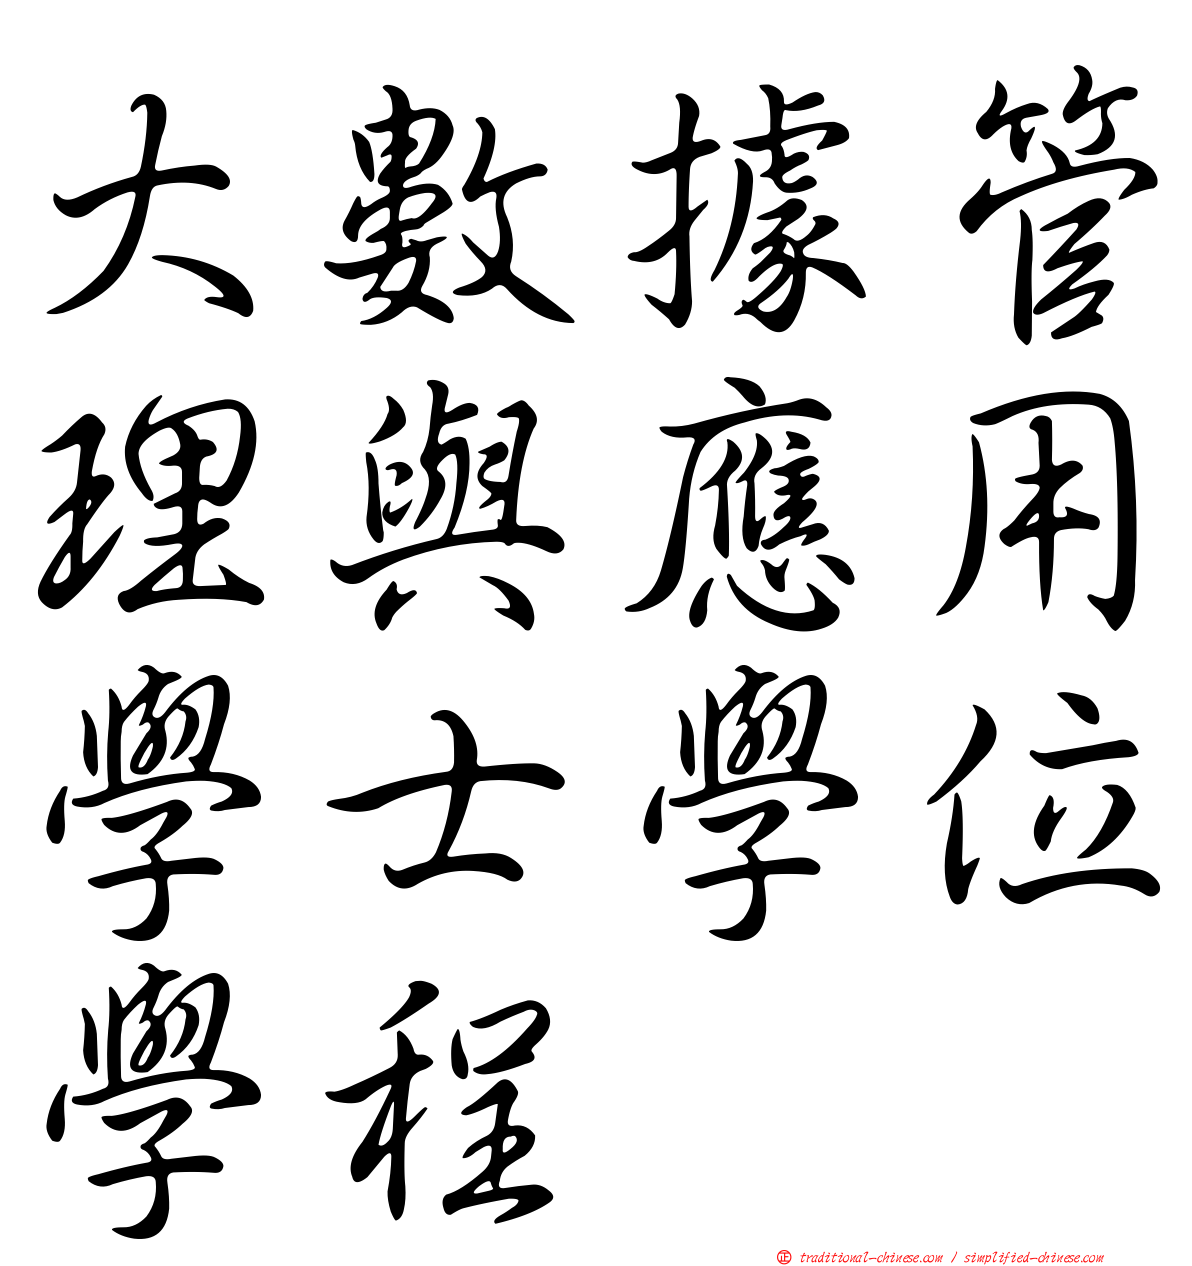 大數據管
理與應用
學士學位
學程
正 traditional-chinese.com / simplified-chinese.com